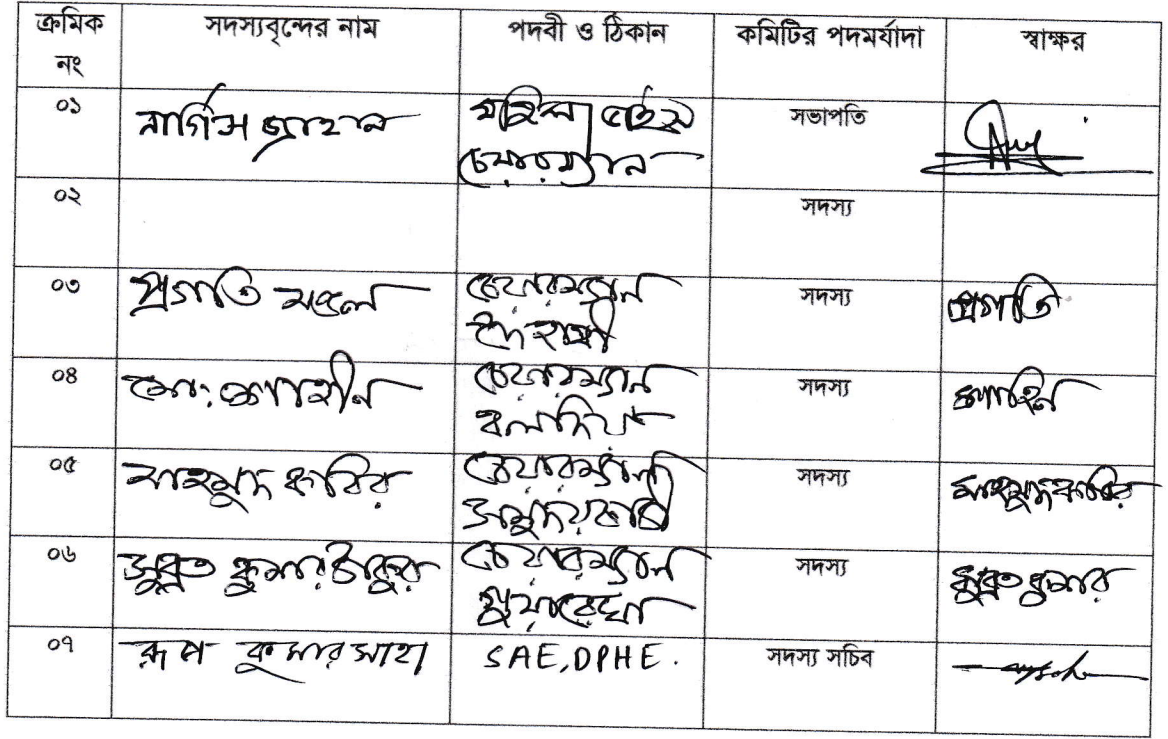 ক্রমিক নং সদস্যবৃন্দের নাম পদবী ও ঠিকান কমিটির পদমর্যাদা স্বাক্ষর
০১ নার্গিস জাহান মহিলা ভাইস চেয়ারম্যান সভাপতি
০২ সদস্য
০৩ প্রগতি মন্ডল চেয়ারম্যান দৈহারী সদস্য প্রগতি
০৪ মো: শাহীন চেয়ারম্যান বলদিয়া সদস্য শাহিন
০৫ মাহমুদ করিব চেয়ারম্যান সমুদয়কাঠী সদস্য মাহমুদ করিব
০৬ সুব্রত কুমার ঠাকুর চেয়ারম্যান গুয়ারেখা সদস্য সুব্রত কুমার
০৭ রূপ কুমার সাহা SAE,DPHE. সদস্য সচিব